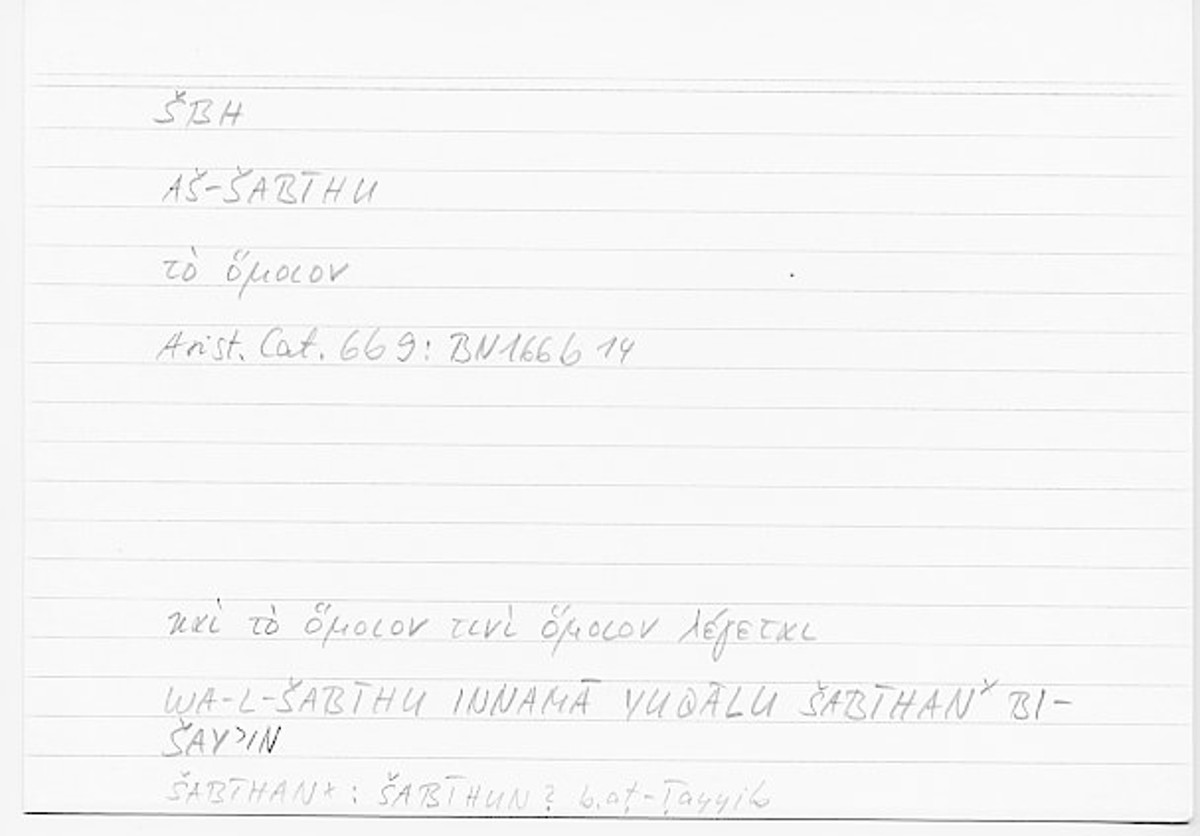 ŠBH
AŠ-ŠABĪHU
τὸ ὅμοιον
Arist. Cat. 6b9: BN166b14
καὶ τὸ ὅμοιον τινὶ ὅμοιον λέγεται
WA-L-ŠABĪHU INNAMĀ YUQĀLU ŠABĪHAN* BI-
ŠAYʾIN
ŠABĪHAN*: ŠABĪHUN? b.aṭ-Ṭayyib